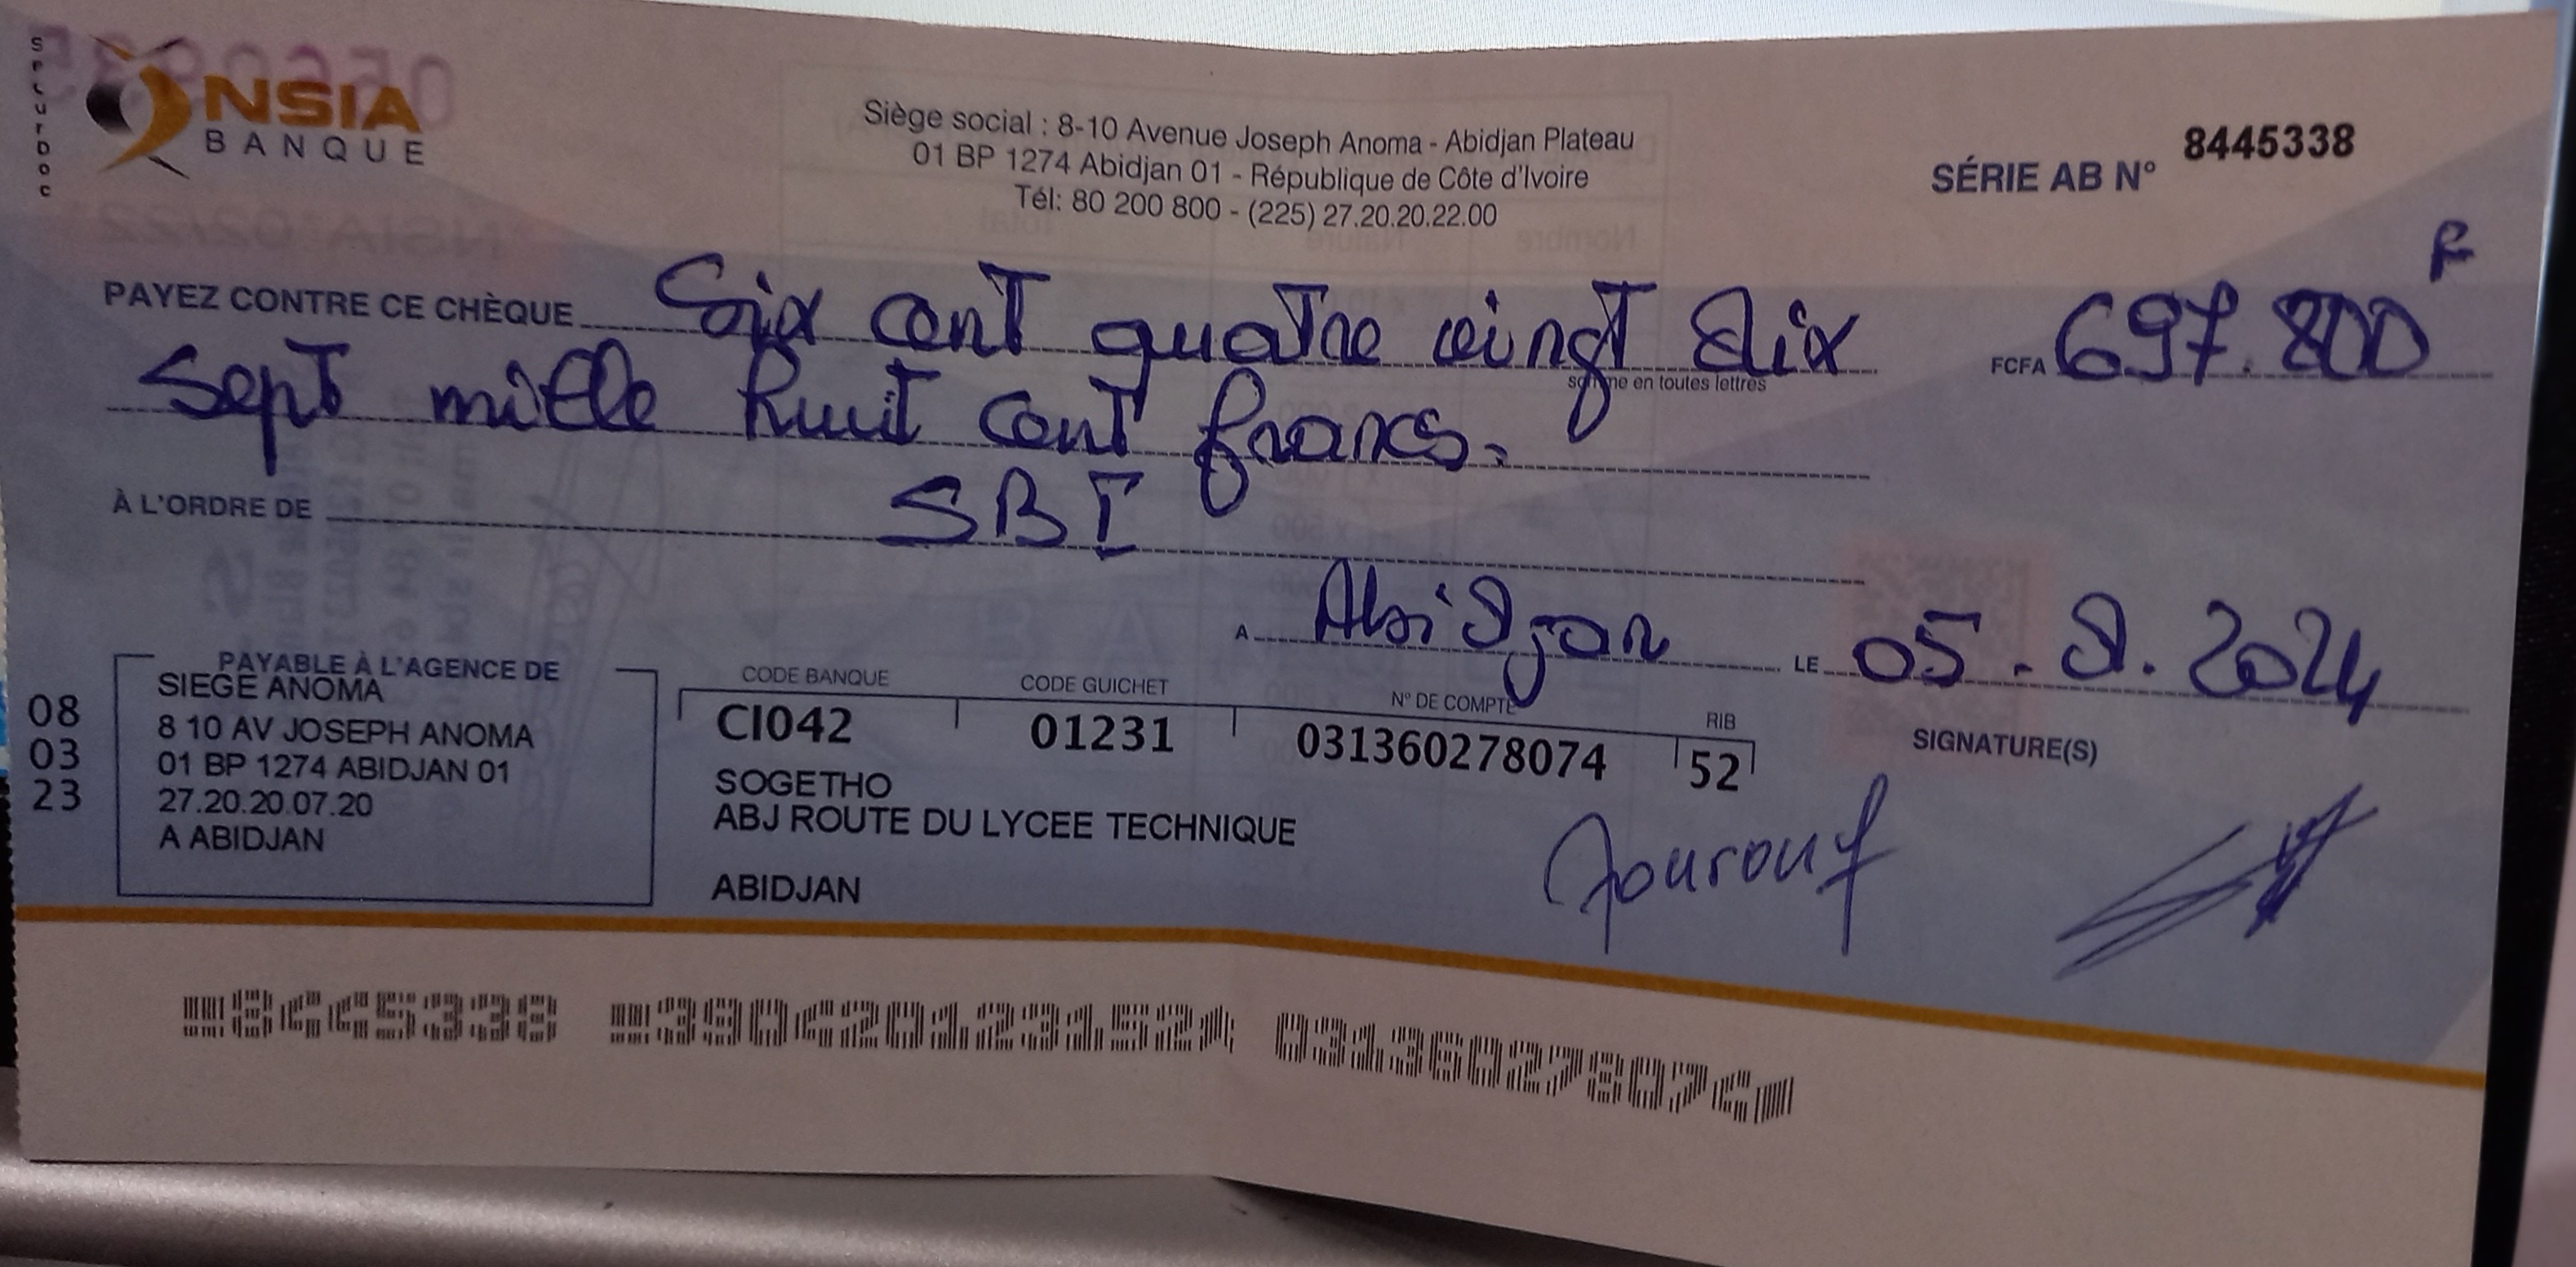 SecurDoc
NSIA
BANQUE
Siège social : 8-10 Avenue Joseph Anoma - Abidjan Plateau
01 BP 1274 Abidjan 01 - République de Côte d'Ivoire
Tél: 80 200 800 - (225) 27.20.20.22.00
SÉRIE AB N° 8445338
PAYEZ CONTRE CE CHÈQUE Six cent quatre vingt dix FCFA 697.800 F
somme en toutes lettres
sept mille huit cent francs.
À L'ORDRE DE SBI
A Abidjan LE 05. 9. 2024
PAYABLE À L'AGENCE DE
SIEGE ANOMA
8 10 AV JOSEPH ANOMA
01 BP 1274 ABIDJAN 01
27.20.20.07.20
A ABIDJAN
08
03
23
CODE BANQUE CODE GUICHET N° DE COMPTE RIB
CI042 01231 031360278074 52
SOGETHO
ABJ ROUTE DU LYCEE TECHNIQUE
ABIDJAN
SIGNATURE(S)
8445338 390420123152 031360278074